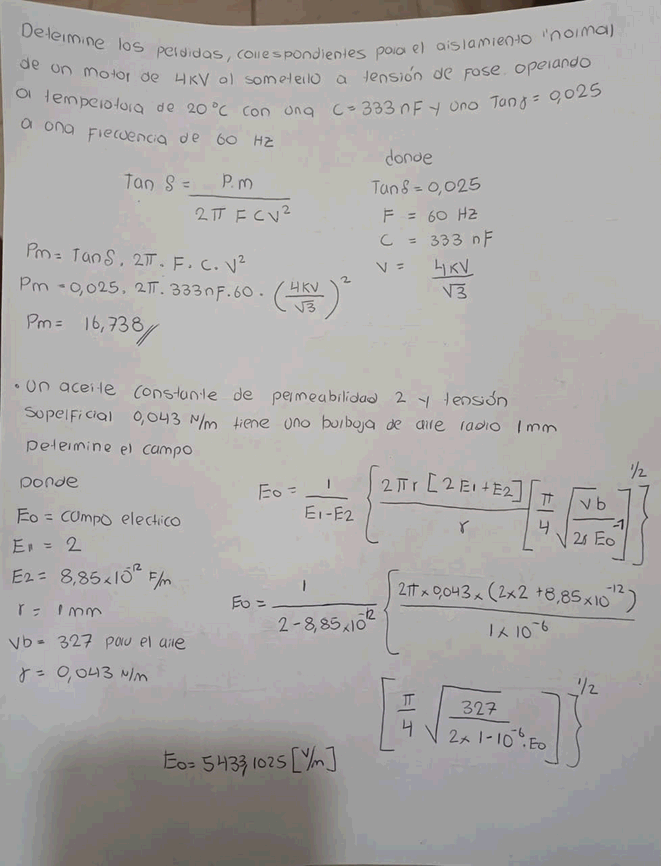 Determine las perdidas, correspondientes para el aislamiento "normal
de un motor de 4KV al someterlo a tensión de fase operando
a temperatura de 20°C con una C = 333 nF y una Tanγ = 0,025
a una frecuencia de 60 Hz
donde
Tan δ = P.m / 2π F C V²
Tanδ = 0,025
F = 60 Hz
C = 333 nF
V = 4KV / √3
Pm = Tanδ. 2π. F. C. V²
Pm = 0,025. 2π. 333nF. 60. (4KV / √3)²
Pm = 16,738
• Un aceite constante de permeabilidad 2 y tensión
superficial 0,043 N/m tiene una burbuja de aire radio 1mm
Determine el campo
Donde
Eo = campo electico
E1 = 2
E2 = 8,85x10⁻¹² F/m
r = 1mm
Vb = 327 para el aire
γ = 0,043 N/m
Eo = 1 / E1-E2 { 2πr [2E1+E2] / r [π/4 √(Vb / 2r Eo) -1] }^1/2
Eo = 1 / 2-8,85x10⁻¹² { 2π x 0,043 x (2x2 + 8,85x10⁻¹²) / 1x10⁻⁶
[π/4 √(327 / 2x1-10⁻⁶.Eo)] }^1/2
Eo = 5433,1025 [V/m]